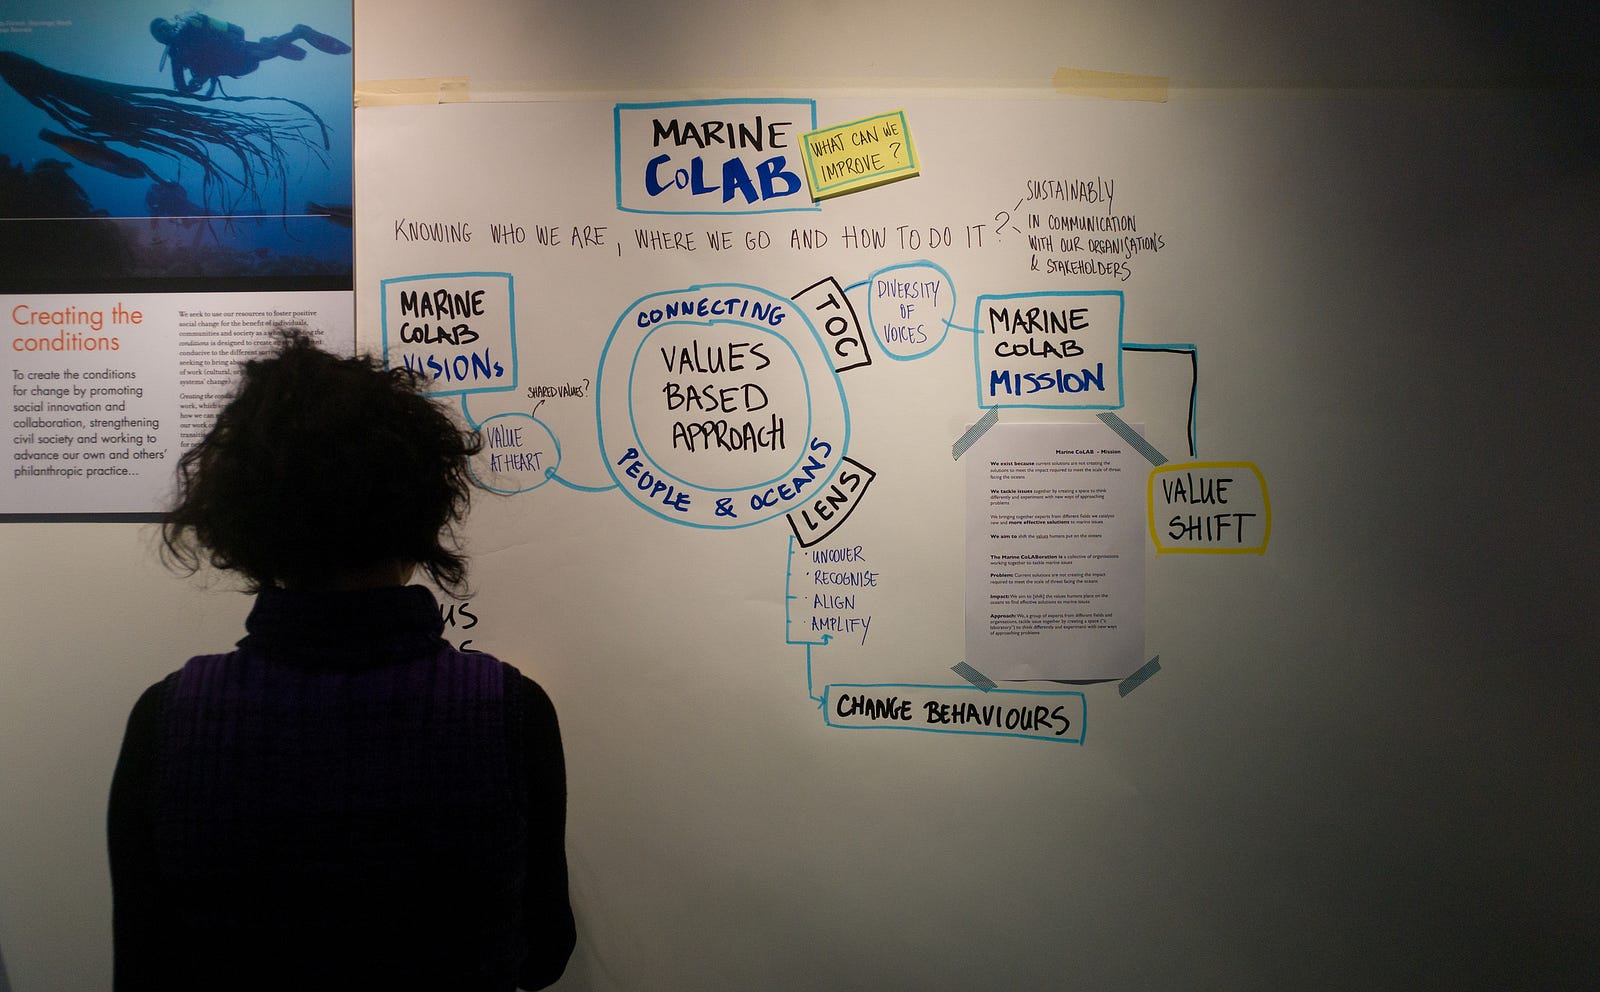 Creating the
conditions
To create the conditions
for change by promoting
social innovation and
collaboration, strengthening
civil society and working to
advance our own and others'
philanthropic practice...
We seek to use our resources to foster positive
social change for the benefit of individuals,
communities and society as a
conditions is designed to create
conducive to the different
seeking to bring
of work (cultural,
systems' change)
MARINE
CoLAB
WHAT CAN WE
IMPROVE?
KNOWING WHO WE ARE, WHERE WE GO AND HOW TO DO IT?
SUSTAINABLY
IN COMMUNICATION
WITH OUR ORGANISATIONS
& STAKEHOLDERS
MARINE
COLAB
VISIONS
SHARED VALUES?
VALUE
AT HEART
CONNECTING
PEOPLE & OCEANS
VALUES
BASED
APPROACH
TOC
DIVERSITY
OF
VOICES
MARINE
COLAB
MISSION
LENS
· UNCOVER
· RECOGNISE
· ALIGN
· AMPLIFY
CHANGE BEHAVIOURS
VALUE
SHIFT
Marine CoLAB - Mission
We exist because current solutions are not creating the
solutions to meet the impact required to meet the scale of threat
facing the oceans
We tackle issues together by creating a space to think
differently and experiment with new ways of approaching
problems
We bringing together experts from different fields we catalyse
new and more effective solutions to marine issues
We aim to shift the values humans put on the oceans
The Marine CoLABoration is a collective of organisations
working together to tackle marine issues
Problem: Current solutions are not creating the impact
required to meet the scale of threat facing the oceans
Impact: We aim to [shift] the values humans place on the
oceans to find effective solutions to marine issues
Approach: We, a group of experts from different fields and
organisations, tackle issue together by creating a space ("a
laboratory") to think differently and experiment with new ways
of approaching problems